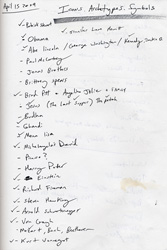 April 15 2009
Icons. Archetypes. Symbols
Obama
Abe Lincoln / George Washington / Kennedy
Paul McCartney
Jonas Brothers
Brittney Spears
Brad Pitt + Angelina Jolie
Jesus (the last supper) The
Buddha
Ghandi
Mona Lisa
Michelangelo David
Harry Potter
Einstein
Richard Feynman
Steve Hawking
Arnold
Van Gough
Mozart, Bach, Beethoven
Kurt Vonnegut